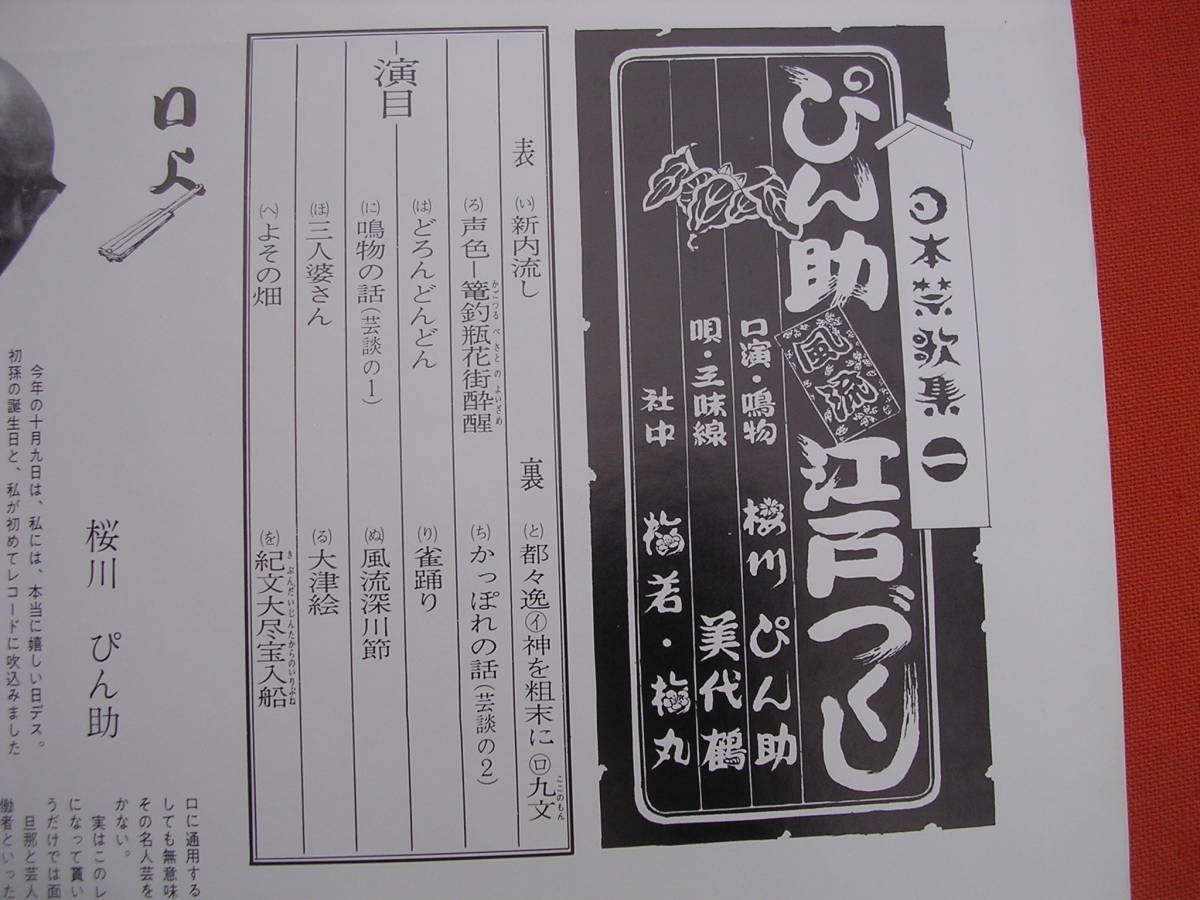 日本禁歌集 一
ぴん助 風流 江戸づくし
口演・鳴物 桜川ぴん助
唄・三味線 美代鶴
社中 梅若・梅丸
演目
表
(い)新内流し
(ろ)声色ー篭釣瓶花街酔醒
かごつるべさとのよいざめ
(は)どろんどんどん
(に)鳴物の話(芸談の1)
(ほ)三人婆さん
(へ)よその畑
裏
(と)都々逸㋑神を粗末に㋺九文
ここのもん
(ち)かっぽれの話(芸談の2)
(り)雀踊り
(ぬ)風流深川節
(る)大津絵
(を)紀文大尽宝入船
きぶんだいじんたからのいりぶね
口上
桜川 ぴん助
今年の十月九日は、私には、本当に嬉しい日デス。
初孫の誕生日と、私が初めてレコードに吹込みました
口に通用する
しても無意味
その名人芸を
かない。
実はこのレ
になって貰い
うだけでは面
旦那と芸人
働者といった